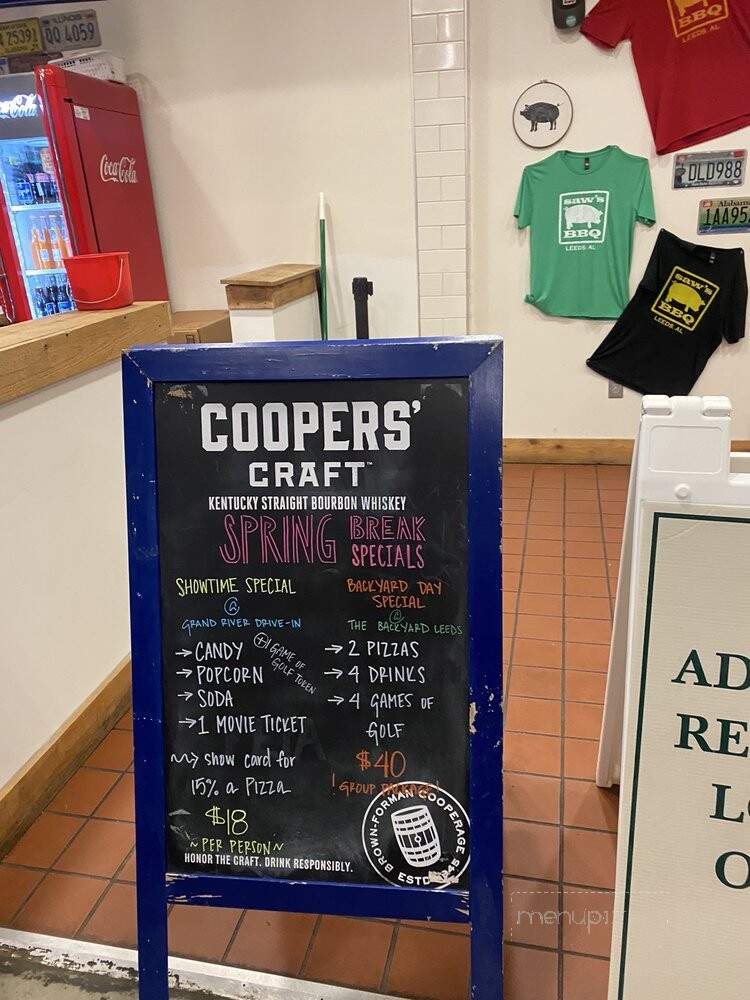 ILLINOIS
Z5391
QQ 4059
Coca-Cola
Coca-Cola
LEEDS, AL
DLD988
Alabama
1AA95
saw's
BBQ
LEEDS, AL
saw's
BBQ
LEEDS, AL
COOPERS'
CRAFT™
KENTUCKY STRAIGHT BOURBON WHISKEY
SPRING BREAK
SPECIALS
SHOWTIME SPECIAL
@
GRAND RIVER DRIVE-IN
→ CANDY
→ POPCORN
→ SODA
→ 1 MOVIE TICKET
+1 GAME OF
GOLF TOKEN
show card for
15% a Pizza
$18
~ PER PERSON ~
BACKYARD DAY
SPECIAL
@
THE BACKYARD LEEDS
→ 2 PIZZAS
→ 4 DRINKS
→ 4 GAMES OF
GOLF
$40
! GROUP PACKAGE!
HONOR THE CRAFT. DRINK RESPONSIBLY.
BROWN-FORMAN COOPERAGE
ESTD 1945
AD
RE
L
O
menupix